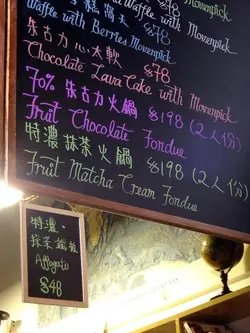 Waffle with Movenpick
$78
Waffle with Berries Movenpick
朱古力心太軟 $78
Chocolate Lava Cake with Movenpick
70% 朱古力火鍋 $198 (2人份)
Fruit Chocolate Fondue
特濃抹茶火鍋 $198 (2人份)
Fruit Matcha Cream Fondue
特濃
Affogato
$48